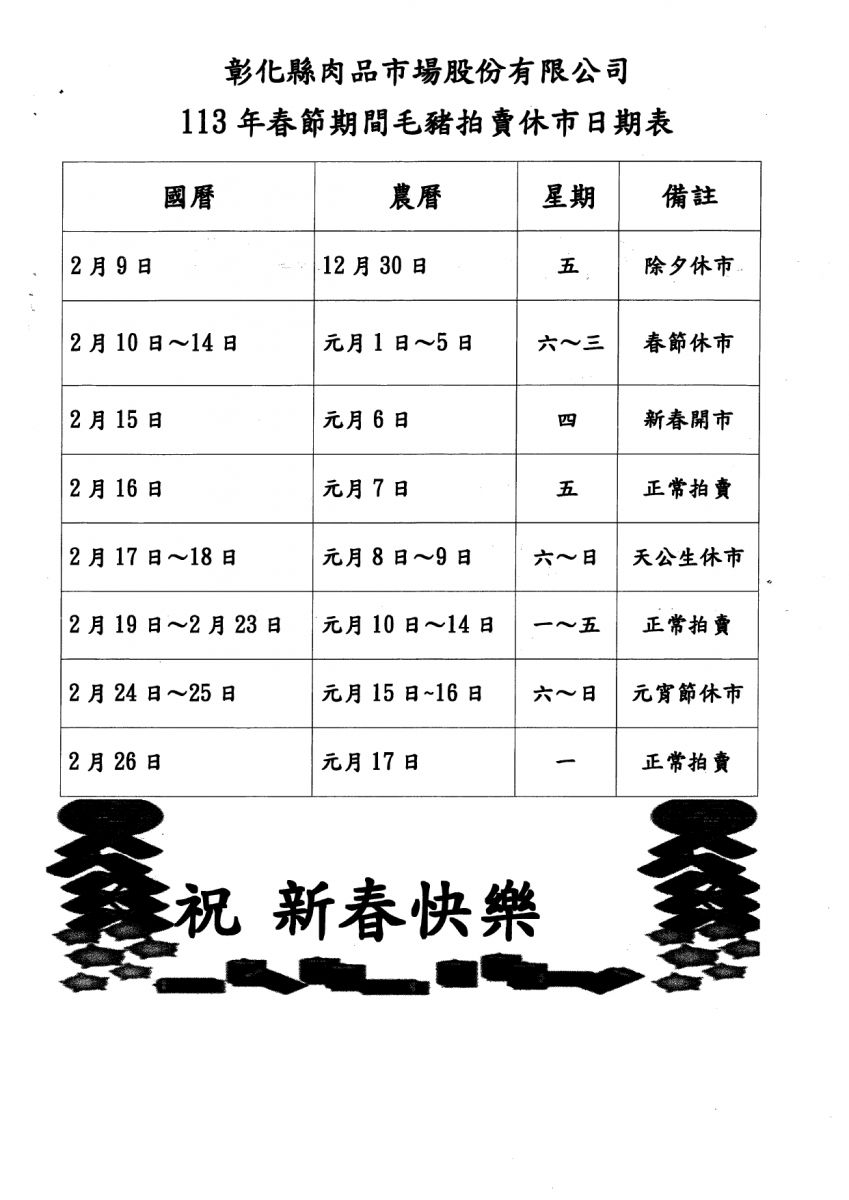 彰化縣肉品市場股份有限公司
113 年春節期間毛豬拍賣休市日期表
國曆 農曆 星期 備註
2 月 9 日 12 月 30 日 五 除夕休市
2 月 10 日～14 日 元月 1 日～5 日 六～三 春節休市
2 月 15 日 元月 6 日 四 新春開市
2 月 16 日 元月 7 日 五 正常拍賣
2 月 17 日～18 日 元月 8 日～9 日 六～日 天公生休市
2 月 19 日～2 月 23 日 元月 10 日～14 日 一～五 正常拍賣
2 月 24 日～25 日 元月 15 日~16 日 六～日 元宵節休市
2 月 26 日 元月 17 日 一 正常拍賣
祝 新春快樂